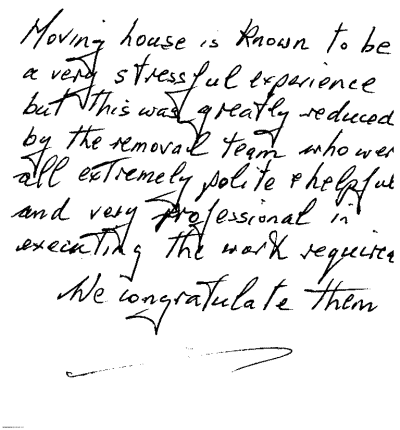 Moving house is known to be
a very stressful experience
but this was greatly reduced
by the removal team who wer
all extremely polite & helpful
and very professional in
executing the work require
We congratulate them